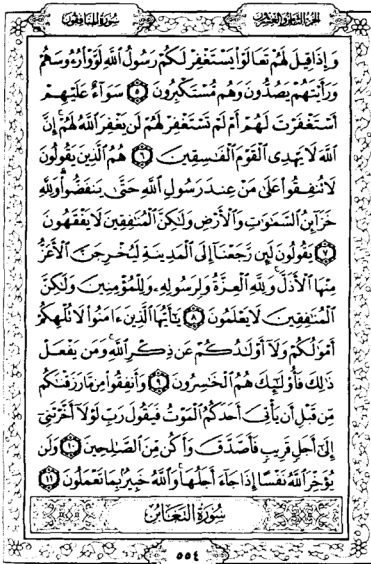 سورة المنافقون
الجزء الثامن والعشرون
وَإِذَا قِيلَ لَهُمْ تَعَالَوْا۟ يَسْتَغْفِرْ لَكُمْ رَسُولُ ٱللَّهِ لَوَّوْا۟ رُءُوسَهُمْ
وَرَأَيْتَهُمْ يَصُدُّونَ وَهُم مُّسْتَكْبِرُونَ ٥ سَوَآءٌ عَلَيْهِمْ
أَسْتَغْفَرْتَ لَهُمْ أَمْ لَمْ تَسْتَغْفِرْ لَهُمْ لَن يَغْفِرَ ٱللَّهُ لَهُمْ إِنَّ
ٱللَّهَ لَا يَهْدِى ٱلْقَوْمَ ٱلْفَـٰسِقِينَ ٦ هُمُ ٱلَّذِينَ يَقُولُونَ
لَا تُنفِقُوا۟ عَلَىٰ مَنْ عِندَ رَسُولِ ٱللَّهِ حَتَّىٰ يَنفَضُّوا۟ وَلِلَّهِ
خَزَآئِنُ ٱلسَّمَـٰوَٰتِ وَٱلْأَرْضِ وَلَـٰكِنَّ ٱلْمُنَـٰفِقِينَ لَا يَفْقَهُونَ
٧ يَقُولُونَ لَئِن رَّجَعْنَآ إِلَى ٱلْمَدِينَةِ لَيُخْرِجَنَّ ٱلْأَعَزُّ
مِنْهَا ٱلْأَذَلَّ وَلِلَّهِ ٱلْعِزَّةُ وَلِرَسُولِهِۦ وَلِلْمُؤْمِنِينَ وَلَـٰكِنَّ
ٱلْمُنَـٰفِقِينَ لَا يَعْلَمُونَ ٨ يَـٰٓأَيُّهَا ٱلَّذِينَ ءَامَنُوا۟ لَا تُلْهِكُمْ
أَمْوَٰلُكُمْ وَلَآ أَوْلَـٰدُكُمْ عَن ذِكْرِ ٱللَّهِ وَمَن يَفْعَلْ
ذَٰلِكَ فَأُو۟لَـٰٓئِكَ هُمُ ٱلْخَـٰسِرُونَ ٩ وَأَنفِقُوا۟ مِن مَّا رَزَقْنَـٰكُم
مِّن قَبْلِ أَن يَأْتِىَ أَحَدَكُمُ ٱلْمَوْتُ فَيَقُولَ رَبِّ لَوْلَآ أَخَّرْتَنِىٓ
إِلَىٰٓ أَجَلٍ قَرِيبٍ فَأَصَّدَّقَ وَأَكُن مِّنَ ٱلصَّـٰلِحِينَ ١٠ وَلَن
يُؤَخِّرَ ٱللَّهُ نَفْسًا إِذَا جَآءَ أَجَلُهَا وَٱللَّهُ خَبِيرٌۢ بِمَا تَعْمَلُونَ ١١
سُورَةُ التَّغَابُنِ
٥٥٤